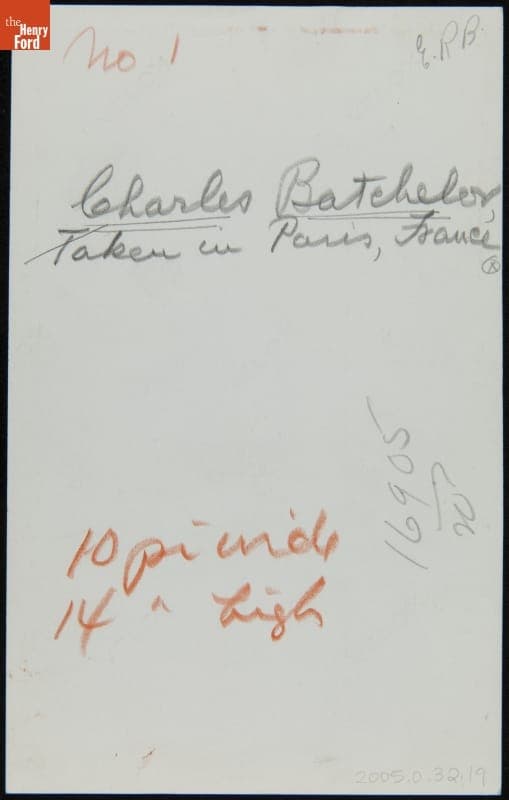 the
Henry
Ford
No 1
E.R.B.
Charles Batchelor,
Taken in Paris, France
x
16905
20
10 pi wide
14 " high
2005.0.32.19